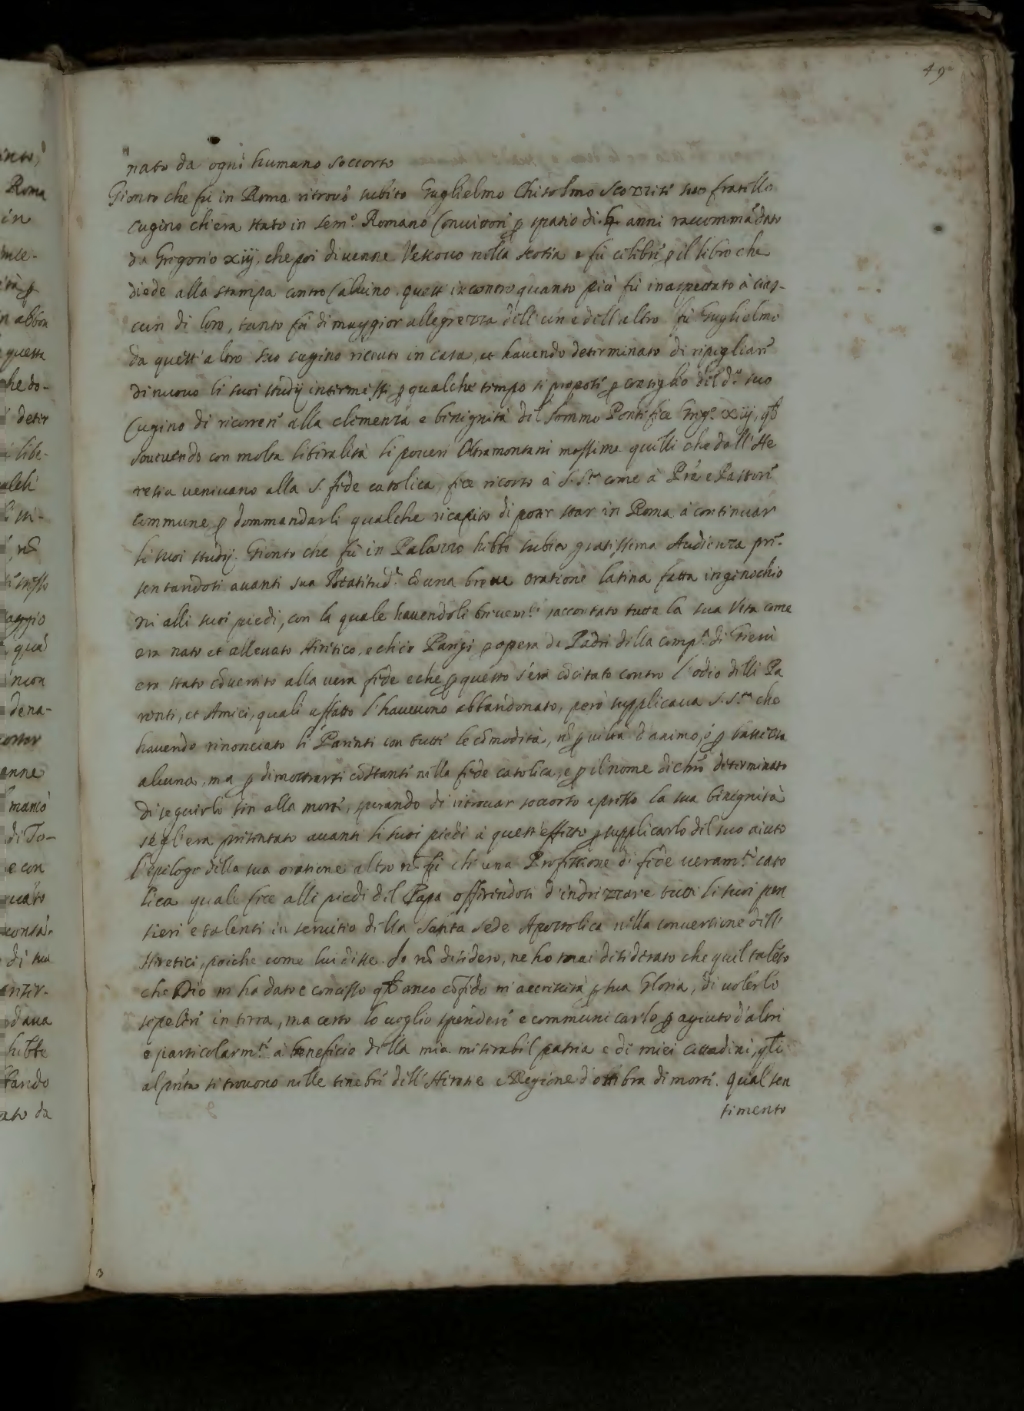 49
nato da ogni humano soccorso
Gionto che fù in Roma ritrovò subito Guglielmo Chisolmo Scozzese suo fratello
cugino ch'era stato in Sem.º Romano Convittore p spatio di anni raccommãdato
da Gregorio xiij. che poi divenne Vescovo nella Scotia e fù celebre p il libro che
diede alla stampa contro Calvino. quest incontro quanto più fù inaspettato à cias-
cun di loro, tanto fù di maggior allegrezza dell'un e dell'altro fù Guglielmo
da quest'altro suo cugino ricevuto in casa, et havendo determinato di ripigliare
di nuovo li suoi studij intermessi p qualche tempo si propose p consiglio del d.º suo
Cugino di ricorrere alla clemenza e benignità del Sommo Pontefice Greg.º xiij, qle
souvenendo con molta liberalità li poveri Oltramontani massime quelli che dall'He
resia venivano alla S. fede catolica, fece ricorso à S. S.tà come à Prẽ e Pastore
commune p dommandarli qualche ricapito di poter star in Roma à continuar
li suoi studij. Gionto che fù in Palazzo hebbe subito gratissima Audienza pre-
sentandosi avanti sua Beatitud.e E una breve oratione latina fatta inginochio
ni alli suoi piedi, con la quale havendoli brevem.te raccontato tutta la sua Vita come
era nato et allevato Heretico, e ch'in Parigi p opera de Padri della Comp.ª di Giesù
era stato cõvertito alla vera fede e che p questo s'era cõcitato contro l'odio delli Pa
renti, et Amici, quali affatto l'havevono abbandonato, però supplicava S. S.tà che
havendo rinonciato li Parenti con tutti le cõmodità, nõ p viltà d'animo, ò p
alcuna, ma p dimostrarsi cõstante nella fede catolica, e p il nome di chrõ determinato
di seguirlo sin alla morte, sperando di ritrovar soccorso apresso la sua benignità
se gl'era presentato avanti li suoi piedi à quest'effetto p supplicarlo del suo aiuto
l'epilogo della sua oratione altro nõ fù ch'una Professione di fede veram.te cato
lica quale fece alli piedi del Papa offerendosi d'indrizzare tutti li suoi pen
sieri e talenti in servitio della Santa Sede Apostolica nella conversione dell'
Heretici, poiche come lui disse. Io nõ desidero, ne ho mai desiderato che quel talẽto
che Dio m'ha dato e concesso qle anco cõfido m'accrescerà p sua Gloria, di volerlo
sepelire in terra, ma certo lo voglio spendere e communicarlo p agiuto d'altri
e particolarm.te à beneficio della mia miserabil patria e di miei Cittadini, qli
al pñte si trovono nelle tenebre dell'Heresie e Regione d'ombra di morte. Qual sen
timento